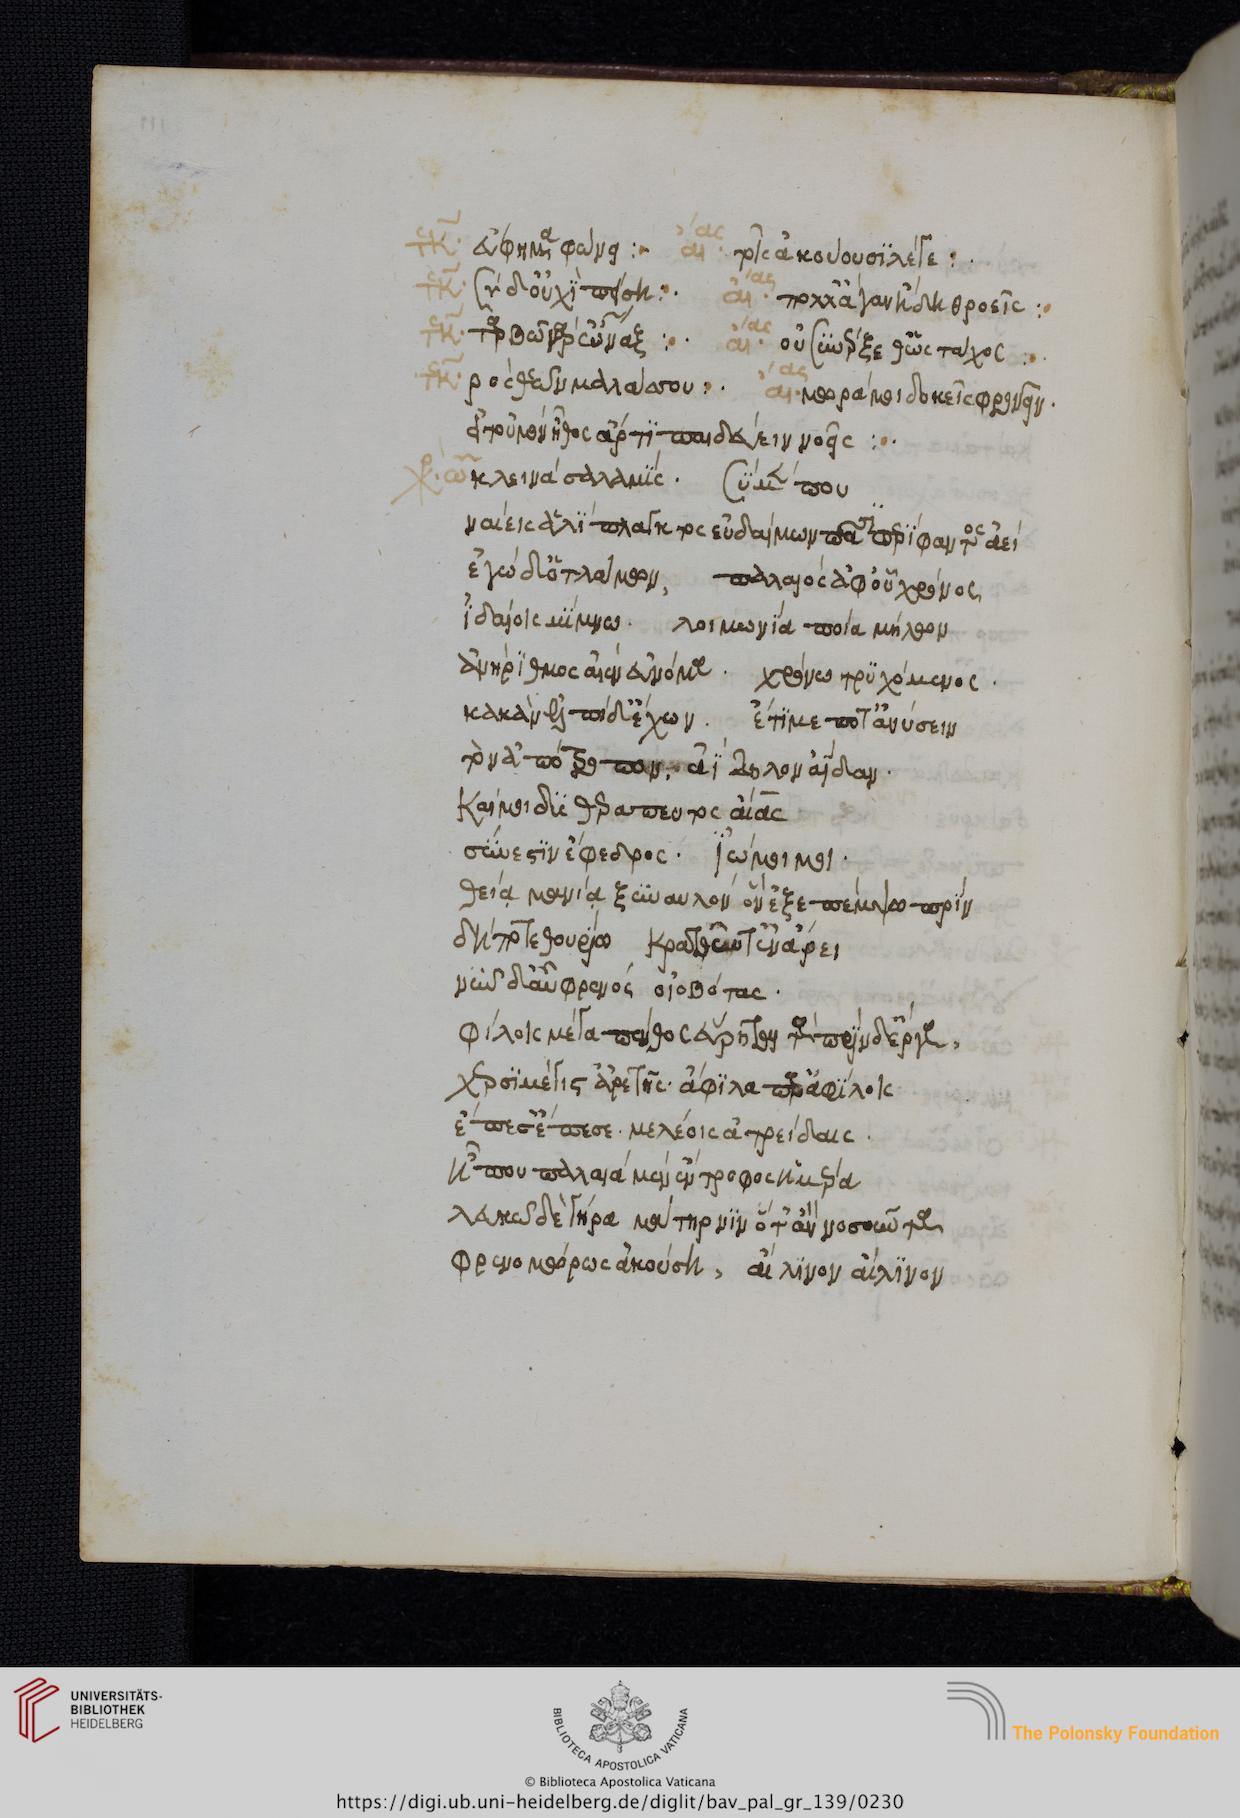 τκ. εὔφημα φώνει :- αἴας. τοῖς ἀκούουσι λέγε :.
τκ. σὺ δ' οὐχὶ πείση :. αἴας. πολλὰ ἄγαν ἤδη θροεῖς :.
τκ. ταρβῶ γὰρ ὦναξ :. αἴας. οὐ ξυνέρξεθ' ὡς τάχος :.
τκ. πρὸς θεῶν μαλάσσου :. αἴας. μῶρά μοι δοκεῖς φρονεῖν.
εἰ τοὐμὸν ἦθος ἄρτι παιδεύειν νοεῖς :.
χο. ὦ κλεινὰ σαλαμίς. σὺ μέν που
ναίεις ἁλίπλαγκτος εὐδαίμων πᾶσι περίφαντος ἀεί
ἐγὼ δ' ὁ τλάμων, παλαιὸς ἀφ' οὗ χρόνος
ἰδαῖος μίμνω. λειμωνία ποία μήλων
ἀνήριθμος αἰὲν εὐνόμα. χρόνω τρυχόμενος.
κακὰν ἐλπίδ' ἔχων. ἔτι με ποτ' ἀνύσειν
τὸν ἀπότροπον, ἀΐδηλον ἀΐδαν.
καί μοι δυσθεράπευτος αἴας
σύνεστιν ἔφεδρος. ἰώ μοι μοι.
θεία μανία ξύναυλος ὃν ἐξεπέμψω πρὶν
δήποτε θουρίω κρατοῦντ' ἐν ἄρει
νῦν δ' αὖ φρενὸς οἰοβότας.
φίλοις μέγα πένθος εὕρηται τὰ πρὶν δ' ἔργα,
χεροῖν μέγιστ' ἀρετῆς. ἄφιλα παρ' ἀφίλοις
ἔπεσ' ἔπεσε. μελέοις ἀτρείδαις.
ἦ που παλαιᾶ μὲν ἔντροφος ἡμέρα
λευκῶ δὲ γήρα μάτηρ νιν ὅταν νοσοῦντα
φρενομόρως ἀκούση, αἴλινον αἴλινον
UNIVERSITÄTS-
BIBLIOTHEK
HEIDELBERG
BIBLIOTECA APOSTOLICA VATICANA
The Polonsky Foundation
© Biblioteca Apostolica Vaticana
https://digi.ub.uni-heidelberg.de/diglit/bav_pal_gr_139/0230